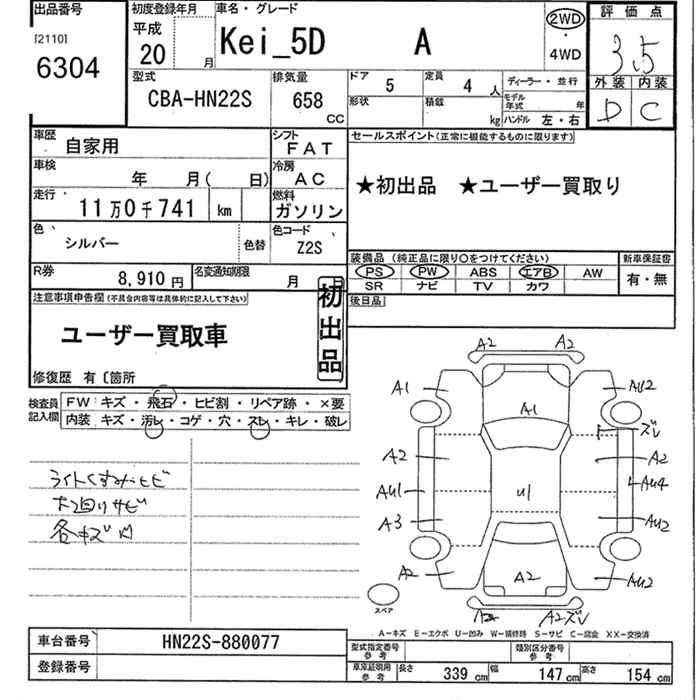 出品番号
[2110]
6304
初度登録年月
平成
20 月
車名・グレード
Kei_5D A
2WD
・
4WD
評価点
3.5
外装 内装
D C
型式
CBA-HN22S
排気量
658
CC
ドア 5
定員 4 人
形状
積載 kg
ディーラー・並行
モデル年式 年
ハンドル 左・右
車歴 自家用
シフト FAT
車検 年 月( 日)
冷房 AC
走行 11万0千741 km
燃料 ガソリン
色 シルバー
色替
色コード Z2S
R券 8,910円
名変通知期限 月
セールスポイント(正常に機能するものに限ります)
★初出品 ★ユーザー買取り
装備品(純正品に限り○をつけてください)
新車保証書
PS PW ABS エアB AW
SR ナビ TV カワ
有・無
後日品
注意事項申告欄(不具合内容等は具体的に記入して下さい)
ユーザー買取車
初出品
修復歴 有〔箇所
検査員記入欄
FW:キズ・飛石・ヒビ割・リペア跡・×要
内装:キズ・汚レ・コゲ・穴・スレ・キレ・破レ
ライトくすみ・ヒビ
下廻りサビ
各キズ凹
A2 A2
A1 AU2
A1
ズレ
A2 A2
AU1 U1 AU4
A3 AU2
A2 A2 AU2
スペア
A2 A2ズレ
A-キズ E-エクボ U-凹み W-補修跡 S-サビ C-腐食 XX-交換済
車台番号 HN22S-880077
登録番号
型式指定番号 参考
類別区分番号 参考
車庫証明用 参考
長さ 339 cm 幅 147 cm 高さ 154 cm